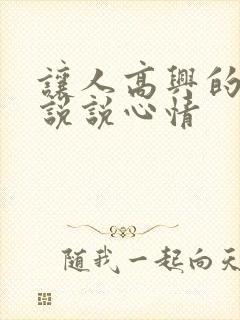 讓人高興的
說說心情
隨我一起向天